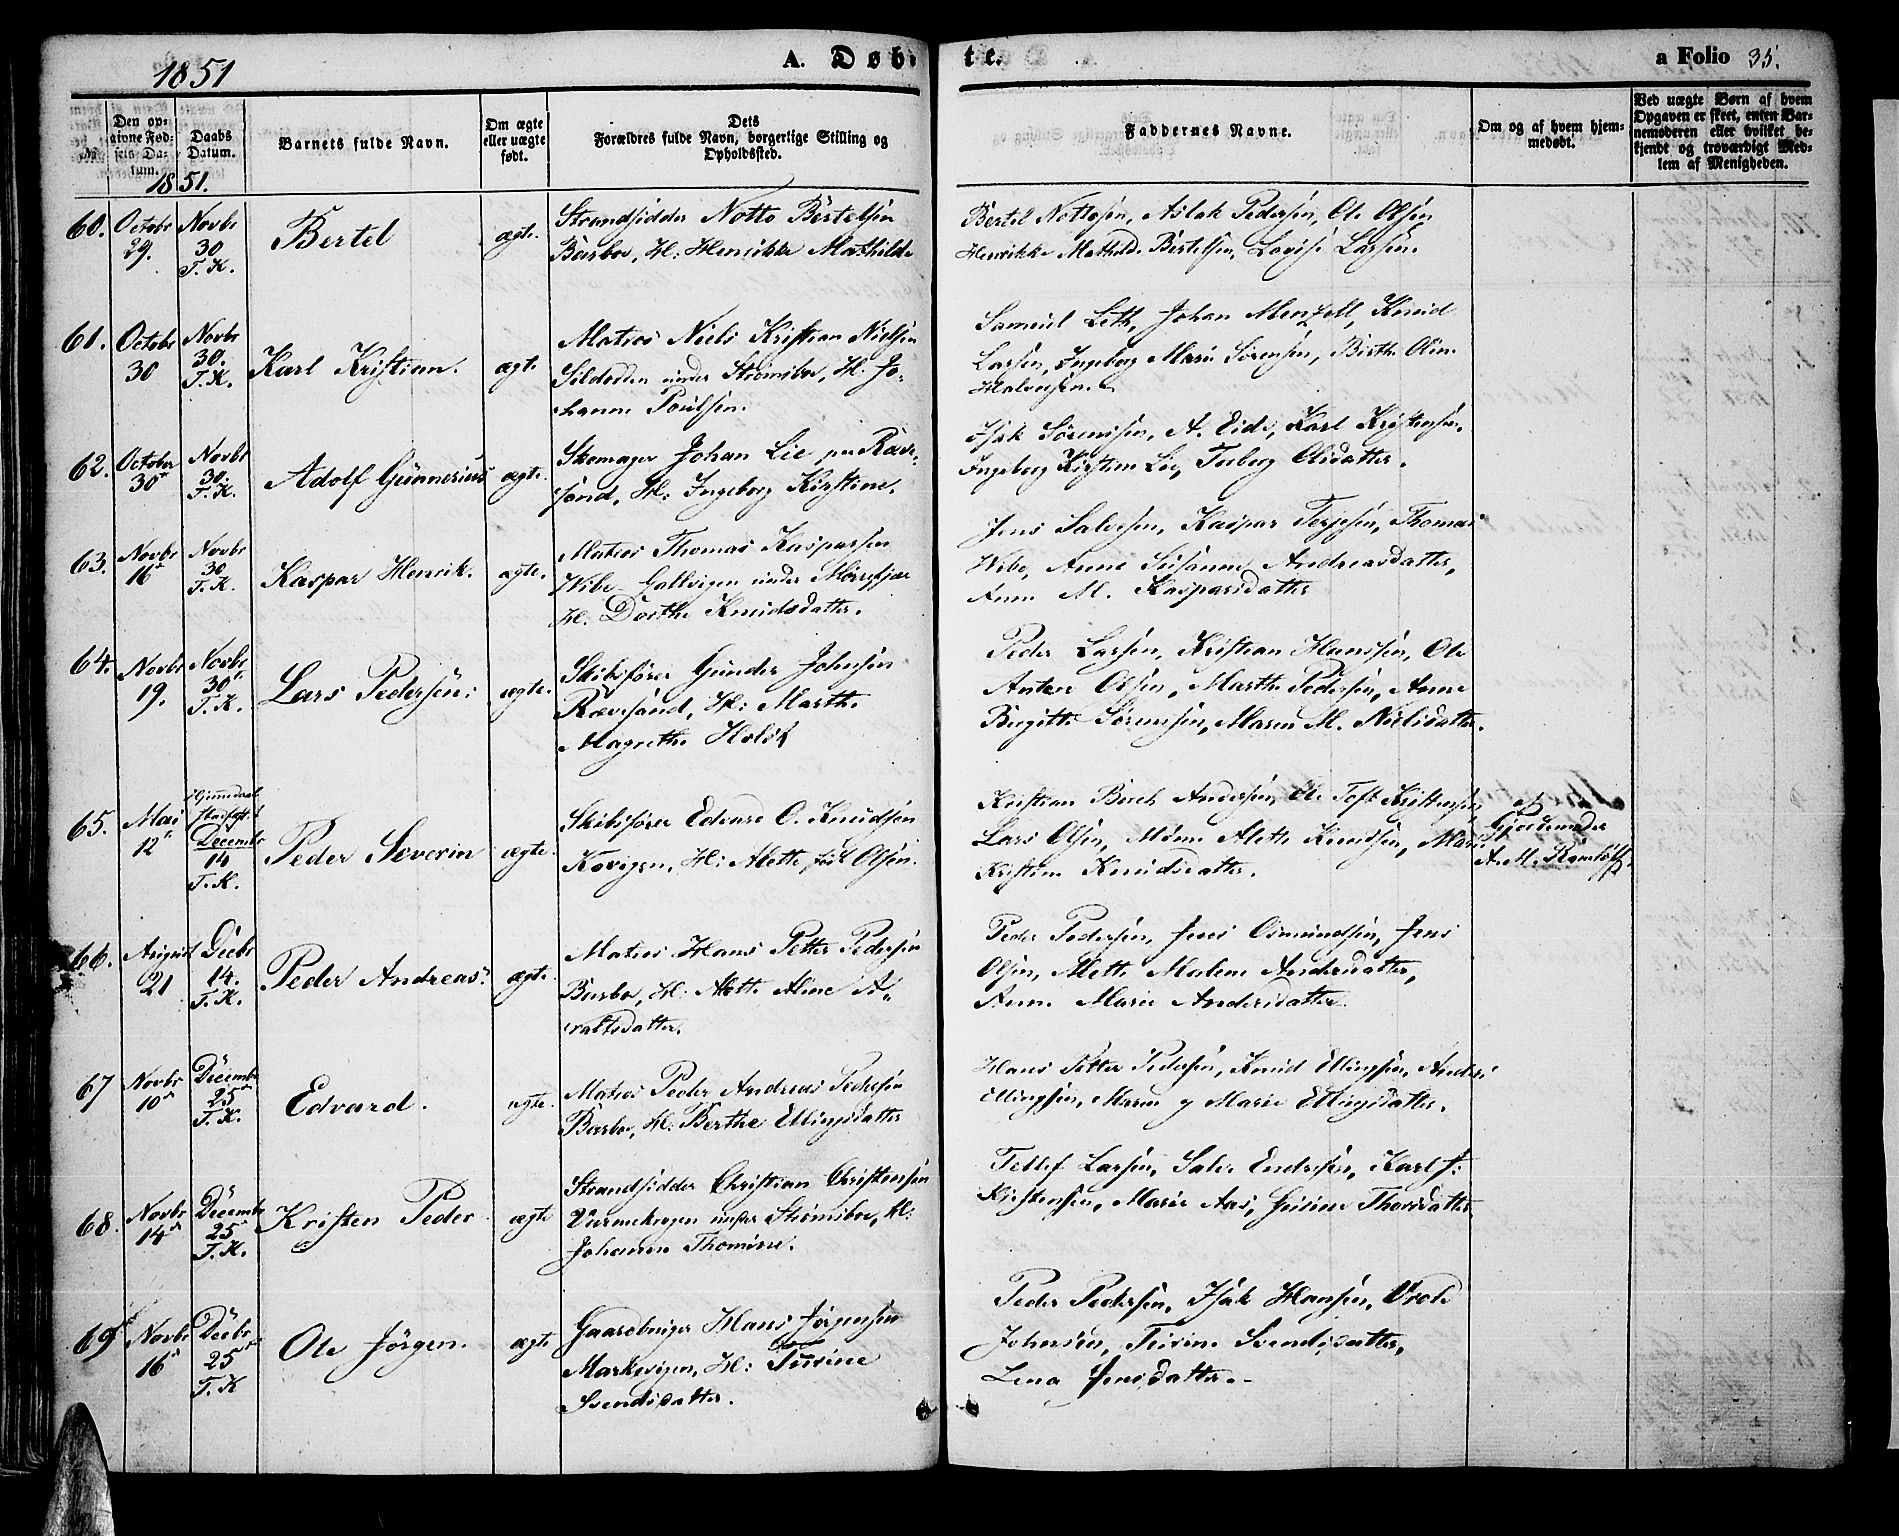 1851
A. Døb-
te.
a Folio 35.
№
Den op-
givne Fød-
sels Da-
tum.
Daabs
Datum.
Barnets fulde Navn.
Om ægte
eller uægte
født.
Dets
Forældres fulde Navn, borgerlige Stilling og
Opholdssted.
Faddernes Navne.
Om og af hvem hjem-
medøbt.
Ved uægte Børn af hvem
Opgaven er skeet, enten Bar-
nemoderen eller hvilket be-
kjendt og troværdigt Med-
lem af Menigheden.
1851.
60. Octobr 29. Novbr 30 T. K. Bertel ægte.
Strandsidder Notto Bertelsen
Barbo, H: Henrikke Mathilde
Bertel Nottosen, Aslak Pedersen, Ole Olsen
Henrikke Mathild. Bertelsen, Lovise Larsen.
61. Octobr 30 Novbr 30. T. K. Karl Kristian. ægte
Matros Niels Kristian Nielsen
Sildodden under Strømsbo, H. Jo-
hanne Poulsen.
Samuel Leth, Johan Menzell, Knud
Larsen, Ingeborg Marie Sørensen, Birthe Oline
Halvorsen.
62. October 30 Novbr 30. T. K. Adolf Gunnerius ægte.
Skomager Johan Lie paa Ræve-
sand, H: Ingeborg Kirstine.
Isak Sørensen, A. Eide, Karl Kristensen.
Ingeborg Kirstine Lie, Torborg Olsdatter.
63. Novbr 16 Novbr 30 T. K. Kaspar Henrik. ægte.
Matros Thomas Kaspersen
Wibe Gallvigen under Mørefjær
H. Dorthe Knudsdatter.
Jens Salvesen, Kaspar Terjesen, Thomas
Wibe, Anne Susanne Andreasdatter,
Anne M. Kaspersdatter
64. Novbr 19. Novbr 30 T. K. Lars Pedersen: ægte.
Skibsfører Gunder Johnsen
Rævesand, H: Marthe
Magrethe Holst
Peder Larsen, Kristian Hansen, Ole
Anton Olsen, Marthe Pedersen, Anne
Birgitte Sørensen, Maren M. Nielsdatter.
65. Mai 12 Hjemmedøbt December 14 T. K. Peder Severin ægte.
Skibsfører Edvard O. Knudsen
Kovigen, H: Alette, født Olsen.
Kristian Buch Andersen, Ole Toft Kristensen,
Lars Olsen, Alette Knudsen, Marie
Kristine Knudsdatter.
af
Gjordemoder
A. M.
66. August 21 Decbr 14. T. K. Peder Andreas. ægte.
Matros Hans Petter Pedersen
Barbo, H: Alette Aline A-
raltsdatter.
Peder Pedersen, Jens Osmundsen, Jens
Olsen, Alette Malene Andersdatter,
Anne Marie Andersdatter.
67 Novbr 10 Decembr 25 T. K. Edvard. ægte.
Matros Peder Andreas Pedersen
Barbo, H: Berthe Ellingsdatter
Hans Petter Pedersen, Knud Ellingsen, Anders
Ellingsen, Maren og Marie Ellingsdatter.
68. Novbr 14 Decembr 25 T. K. Kristen Peder ægte
Strandsidder Christian Christensen
under Strømsbo, H:
Johanne Thomine.
Tellef Larsen, Salve Endresen, Karl J.
Kristensen, Marie Aas, Gusine Thorsdatter.
69 Novbr 16 Decbr 25 T. K Ole Jörgen. ægte
Gaardbruger Hans Jørgensen
Markevigen, H: Tusine
Svendsdatter.
Peder Pedersen, Isak Hansen, Wrole
Johnsen, Tusine Svendsdatter,
Lena Jensdatter.